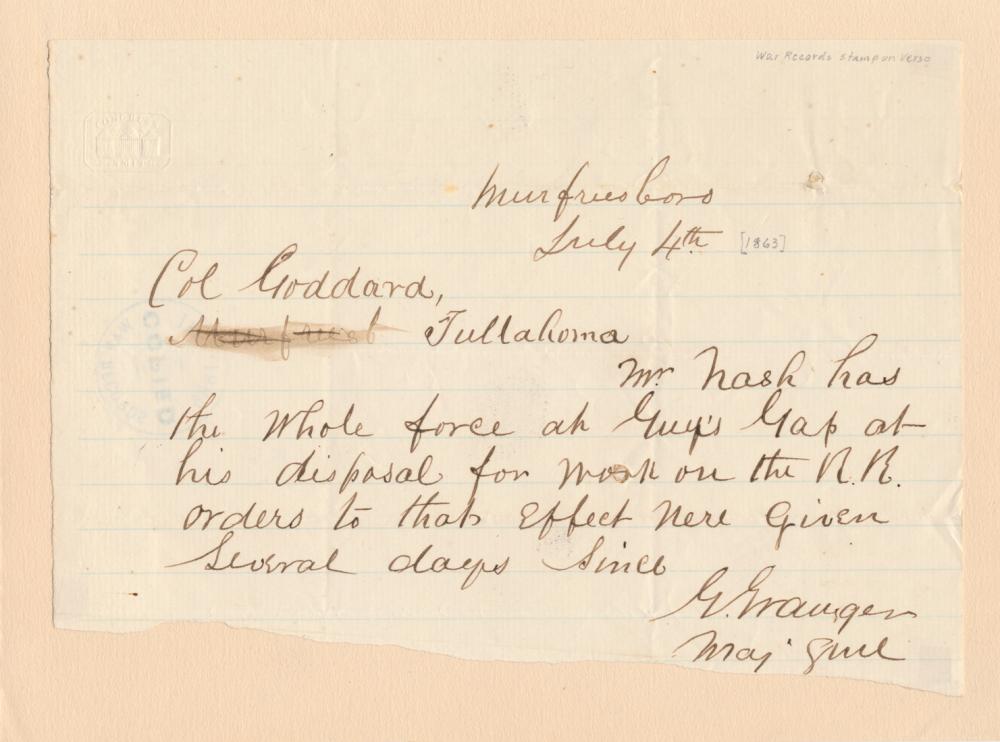 War Records stamp on verso
Murfreesboro
July 4th [1863]
Col Goddard,
Murfreesb Tullahoma
Mr Nash has
the whole force at Guy's Gap at
his disposal for work on the R.R.
orders to that effect were given
Several days since
G. Granger
Maj Genl
COPIED